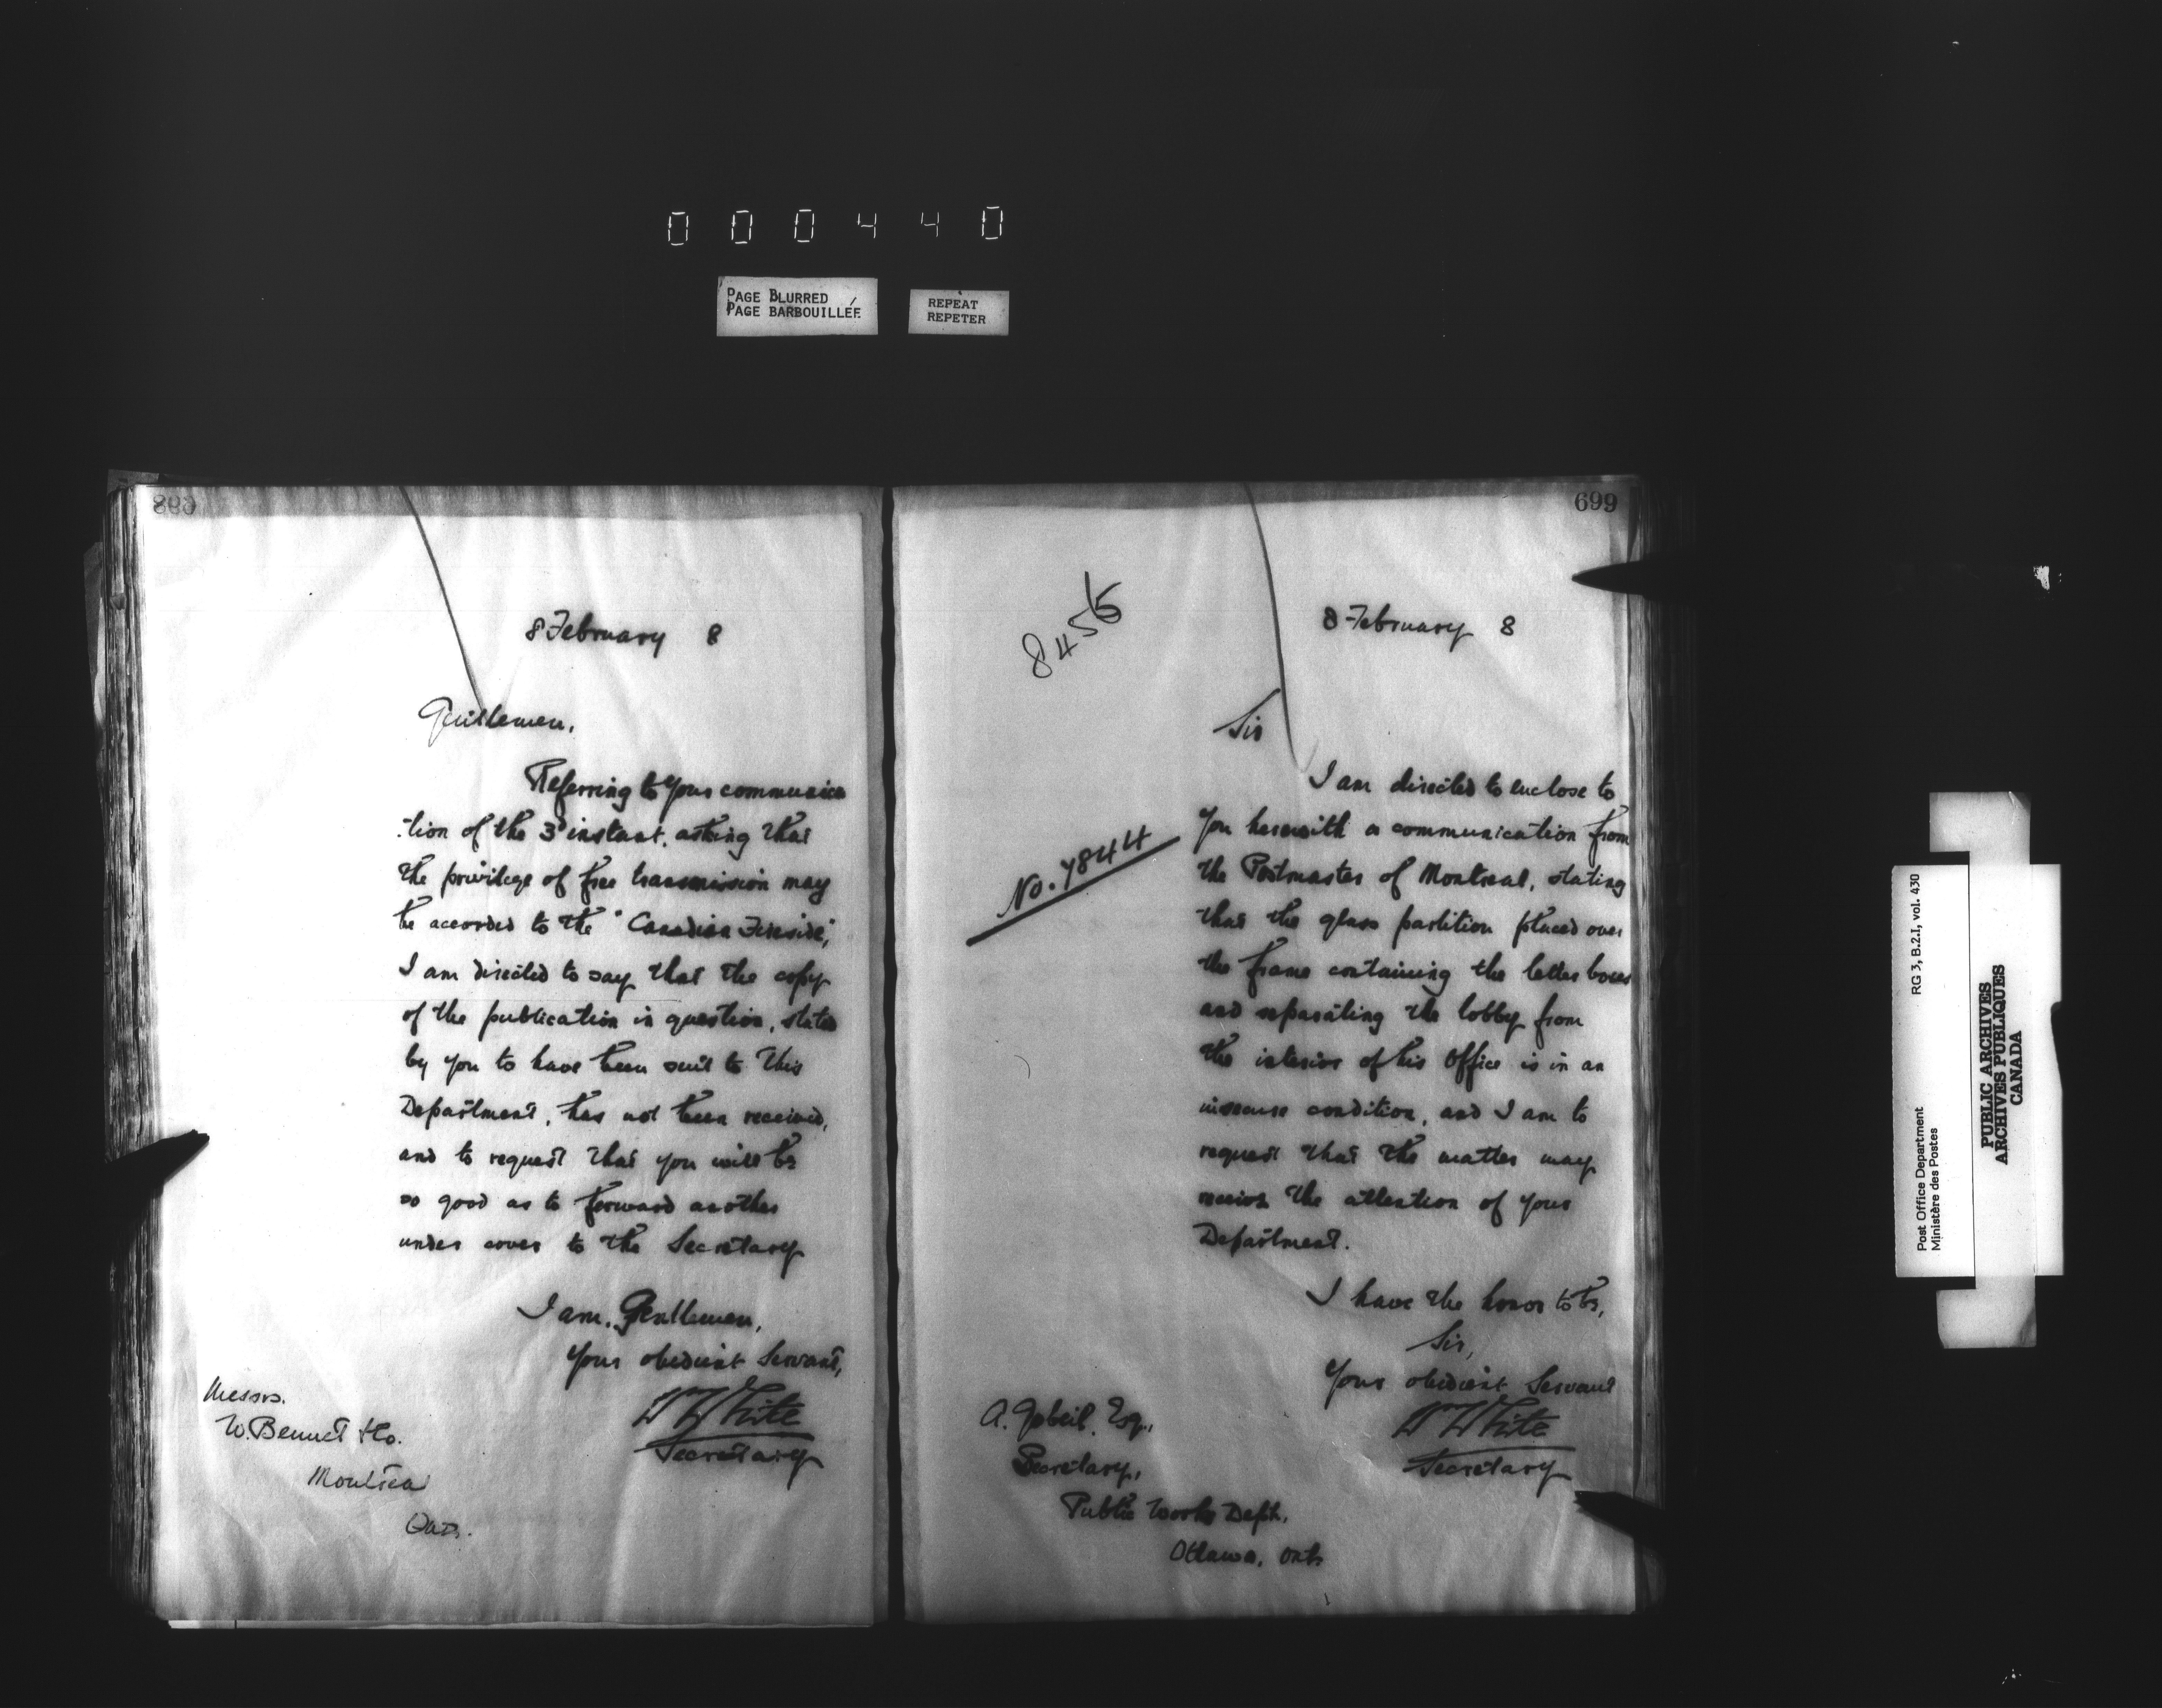 000440
PAGE BLURRED
PAGE BARBOUILLÉE
REPEAT
REPETER
8 February 8
Gentlemen,
Referring to your communica
-tion of the 3d instant, asking that
the privilege of free transmission may
be accorded to the "Canadian Fireside",
I am directed to say that the copy
of the publication in question, stated
by you to have been sent to this
Department, has not been received,
and to request that you will be
so good as to forward another
under cover to the Secretary
I am, Gentlemen,
Your obedient Servant,
W White
Secretary
Messrs.
W. Bennet & Co.
Montreal
699
8456
8 February 8
Sir
I am directed to enclose to
you herewith a communication from
No. 7844
the Postmaster of Montreal, stating
that the glass partition placed over
the frame containing the letter boxes
and separating the lobby from
the interior of his Office is in an
insecure condition, and I am to
request that the matter may
receive the attention of your
Department.
I have the honor to be,
Sir,
Your obedient Servant
W White
Secretary
A. Gobeil, Esq.,
Secretary,
Public Works Dept.,
Ottawa, Ont.
Post Office Department
Ministère des Postes
RG 3, B.2.I, vol. 430
PUBLIC ARCHIVES
ARCHIVES PUBLIQUES
CANADA